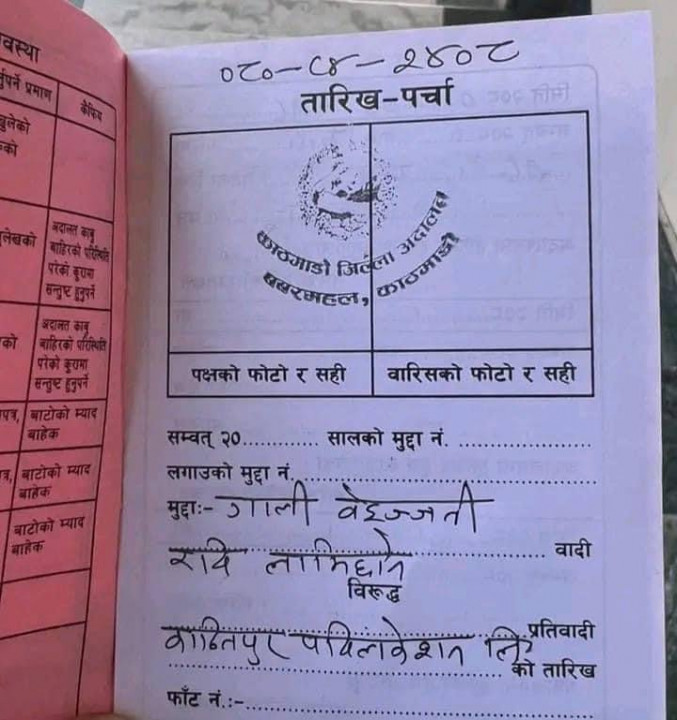 वस्था
र्नुपर्ने प्रमाण
कैफियत
खुलेको
को
अदालत काबु
बाहिरको परिस्थिति
परेको कुरामा
सन्तुष्ट हुनुपर्ने
को
अदालत काबु
बाहिरको परिस्थिति
परेको कुरामा
सन्तुष्ट हुनुपर्ने
बाटोको म्याद
बाहेक
बाटोको म्याद
बाहेक
बाटोको म्याद
बाहेक
०८०-C४-२४०८
तारिख-पर्चा
काठमाडौं जिल्ला अदालत
बबरमहल, काठमाडौं
पक्षको फोटो र सही
वारिसको फोटो र सही
सम्वत् २०............ सालको मुद्दा नं. ......................
लगाउको मुद्दा नं. ......................
मुद्दाः- गाली वेइज्जती
रवि लामिछाने वादी
विरूद्ध
कान्तिपुर पब्लिकेशन लि प्रतिवादी
को तारिख
फाँट नं.:-......................